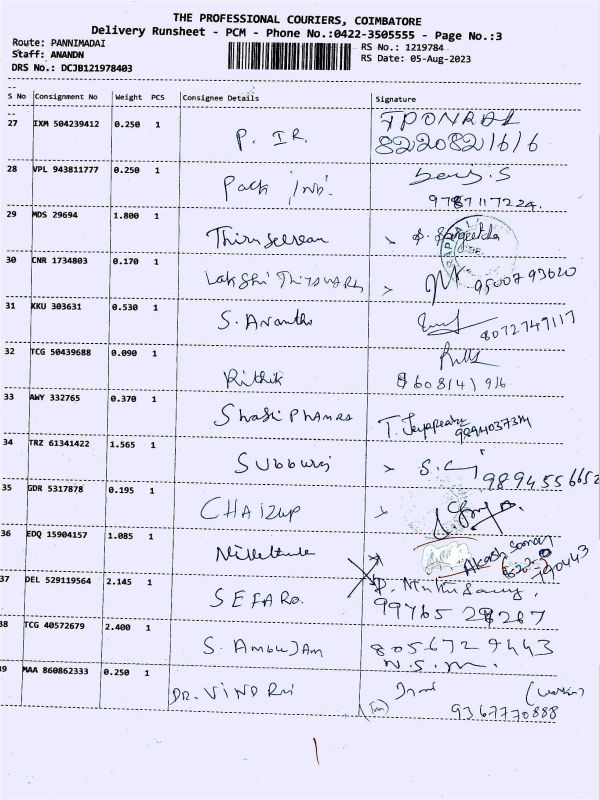 THE PROFESSIONAL COURIERS, COIMBATORE
Delivery Runsheet - PCM - Phone No.:0422-3505555 - Page No.:3
Route: PANNIMADAI
RS No.: 1219784
Staff: ANANDN
RS Date: 05-Aug-2023
DRS No.: DCJB121978403
S No Consignment No Weight PCS Consignee Details Signature
27 IXM 504239412 0.250 1 P. IR. TPONRAL
8220821616
28 VPL 943811777 0.250 1 Pack Ind.
9787117224.
29 MDS 29694 1.800 1 S. Sangeetha
30 CNR 1734803 0.170 1 Lakshi
9500793620
31 KKU 303631 0.530 1 S. Anantho
8072749117
32 TCG 50439688 0.090 1 Rithik
9608141916
33 AWY 332765 0.370 1 Shasti Pharma T. Jayaprabha
9894037374
34 TRZ 61341422 1.565 1 Subburaj S.
9894556652
35 GDR 5317878 0.195 1 CHAIZUP
36 EDQ 15904157 1.085 1 Akash Samay
790443
37 DEL 529119564 2.145 1 SEFARO. P. Muthu Samy.
99765 28267
38 TCG 40572679 2.400 1 S. Ambujam 8056729443
N.S.M.
39 MAA 860862333 0.250 1 DR. VINDRI
9367770888